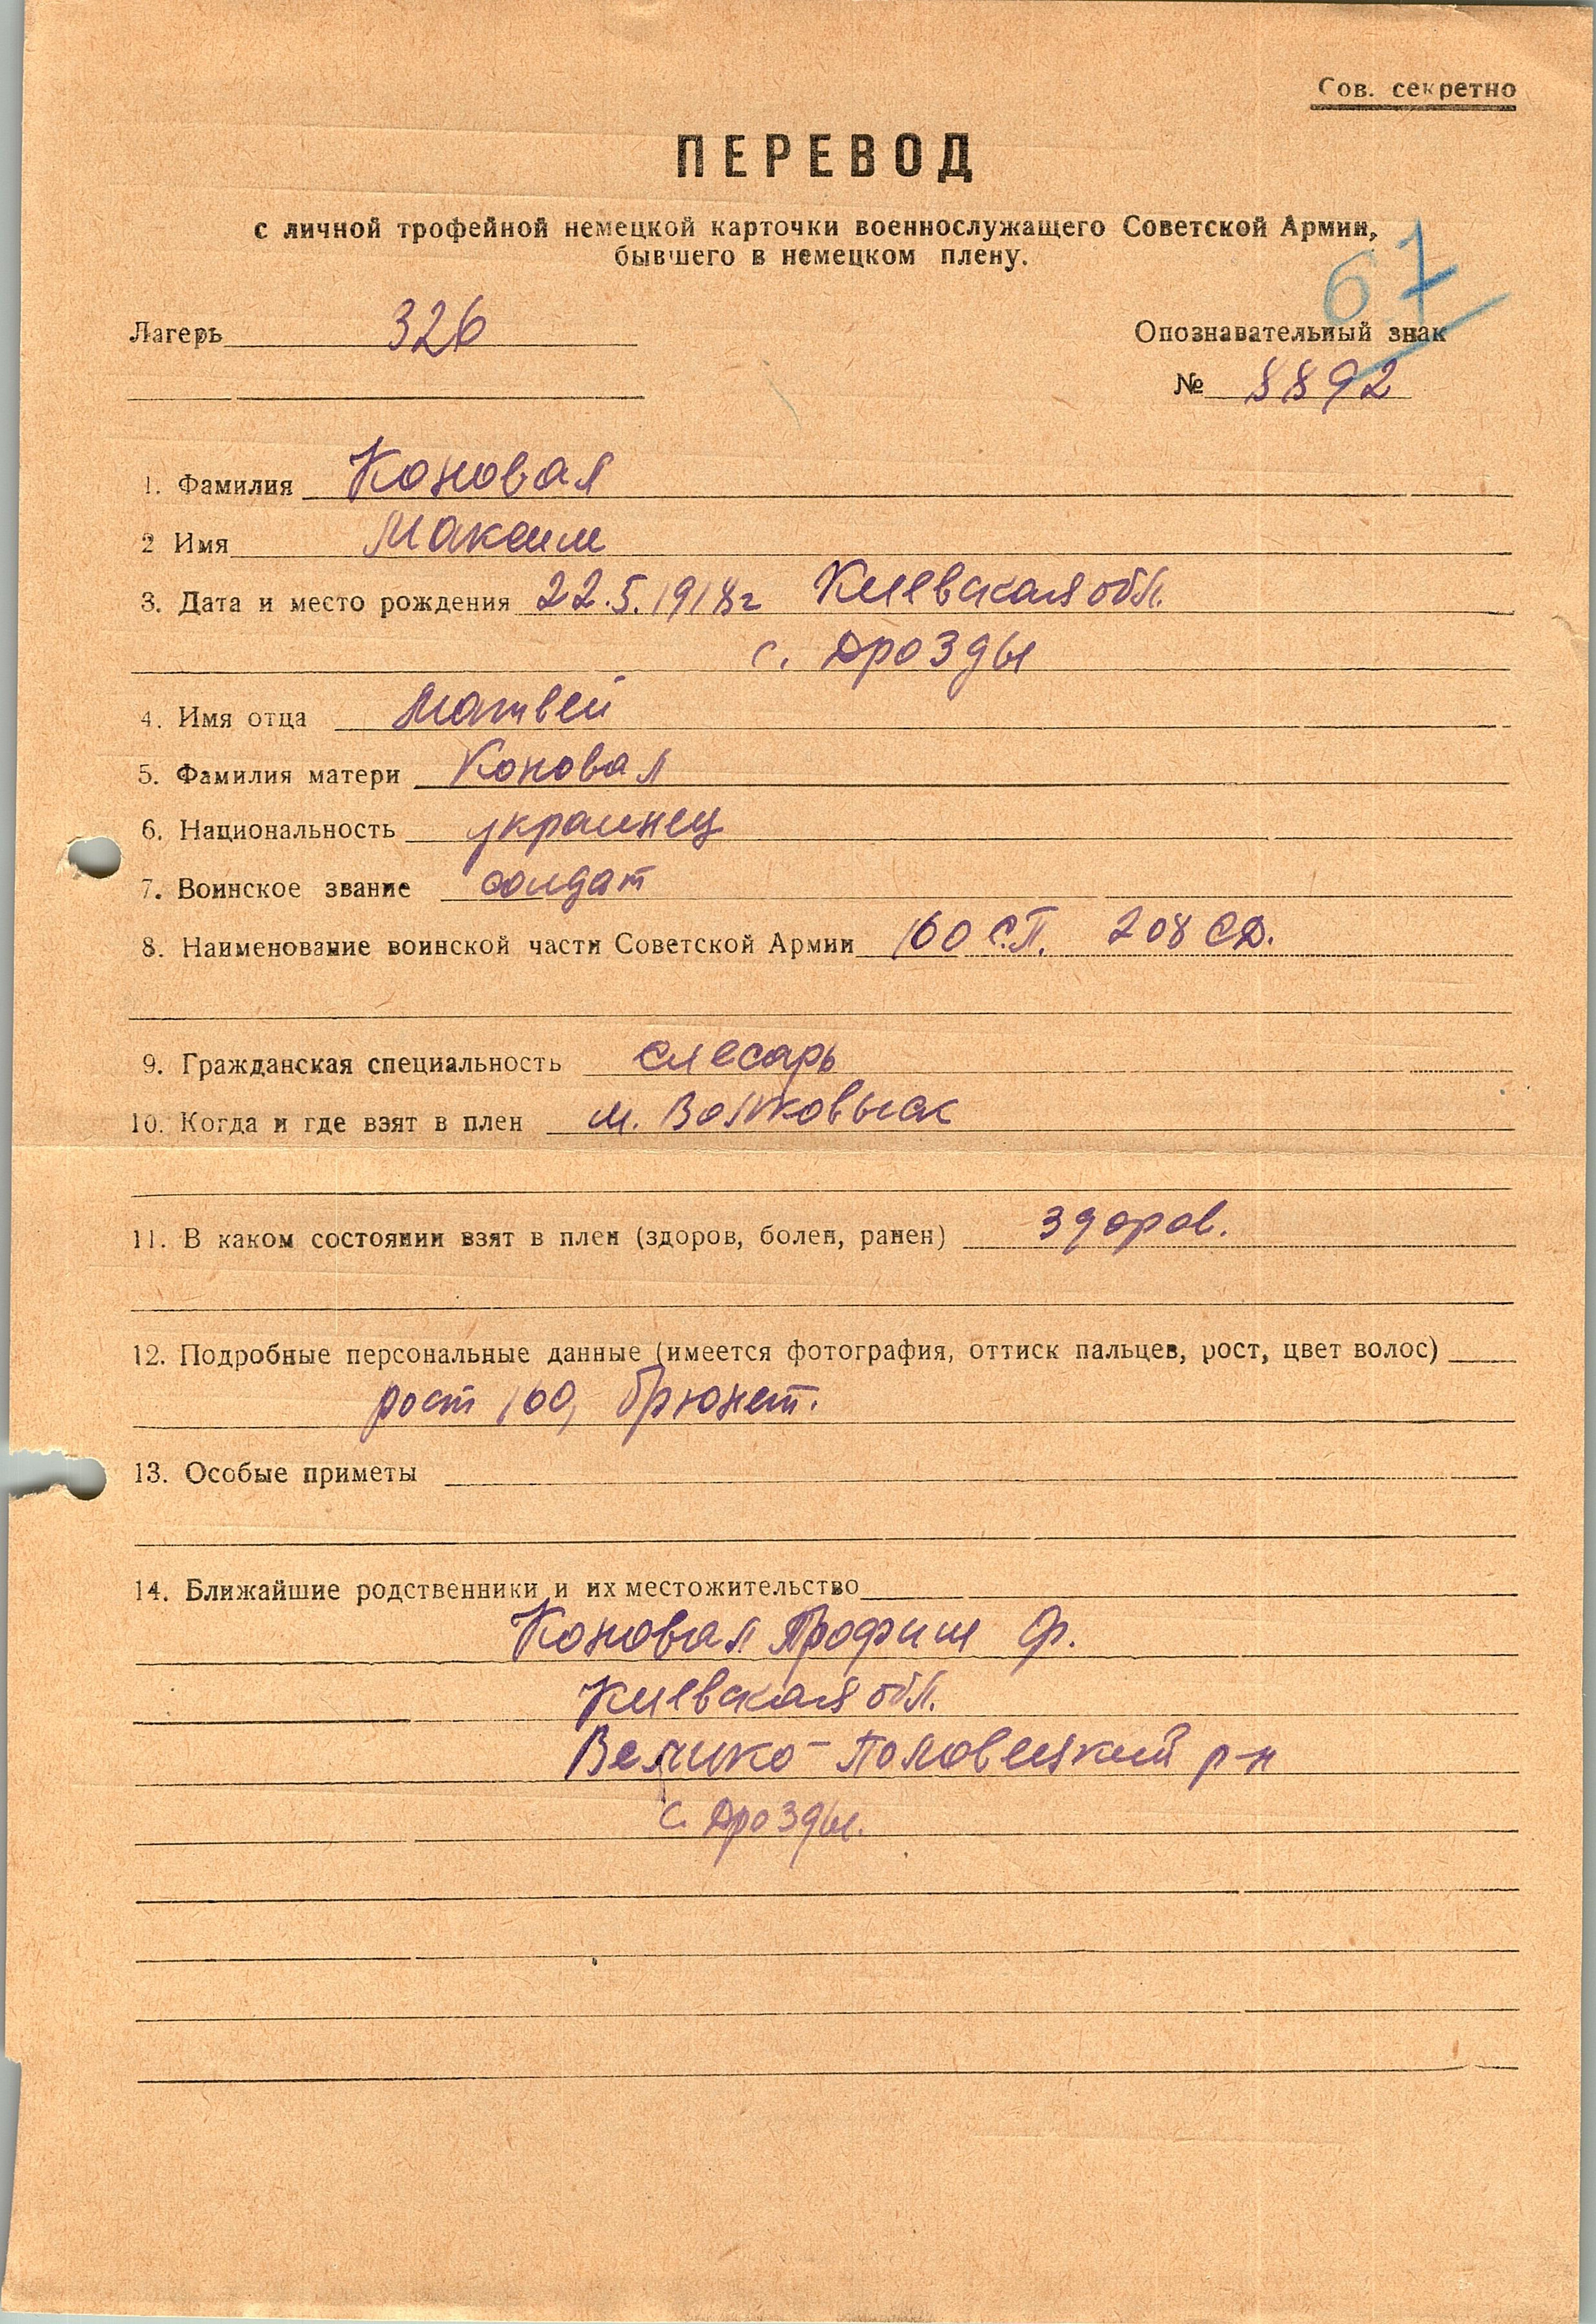 Сов. секретно
ПЕРЕВОД
с личной трофейной немецкой карточки военнослужащего Советской Армии,
бывшего в немецком плену.
67
Лагерь 326
Опознавательный знак
№ 8892
1. Фамилия Коновал
2 Имя Максим
3. Дата и место рождения 22.5.1918г Киевская обл.
с. Дрозды
4. Имя отца Матвей
5. Фамилия матери Коновал
6. Национальность украинец
7. Воинское звание солдат
8. Наименование воинской части Советской Армии 160 С.П. 208 СД.
9. Гражданская специальность слесарь
10. Когда и где взят в плен м. Волковыск
11. В каком состоянии взят в плен (здоров, болен, ранен) здоров.
12. Подробные персональные данные (имеется фотография, оттиск пальцев, рост, цвет волос)
рост 160, брюнет.
13. Особые приметы
14. Ближайшие родственники и их местожительство
Коновал Трофим Ф.
Киевская обл.
Велико-Половецкий р-н
с. Дрозды.